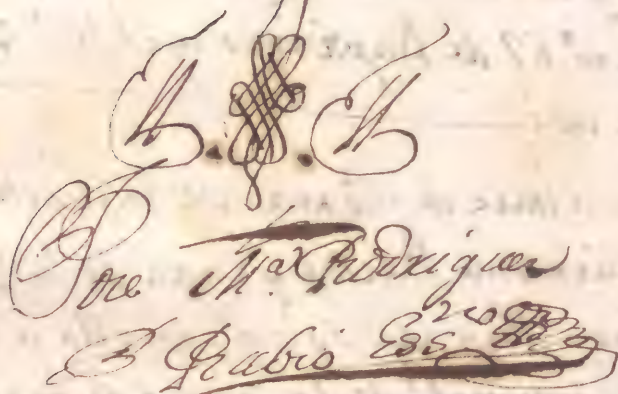 Jose M.ª Rodriguez
Rubio Ess.no